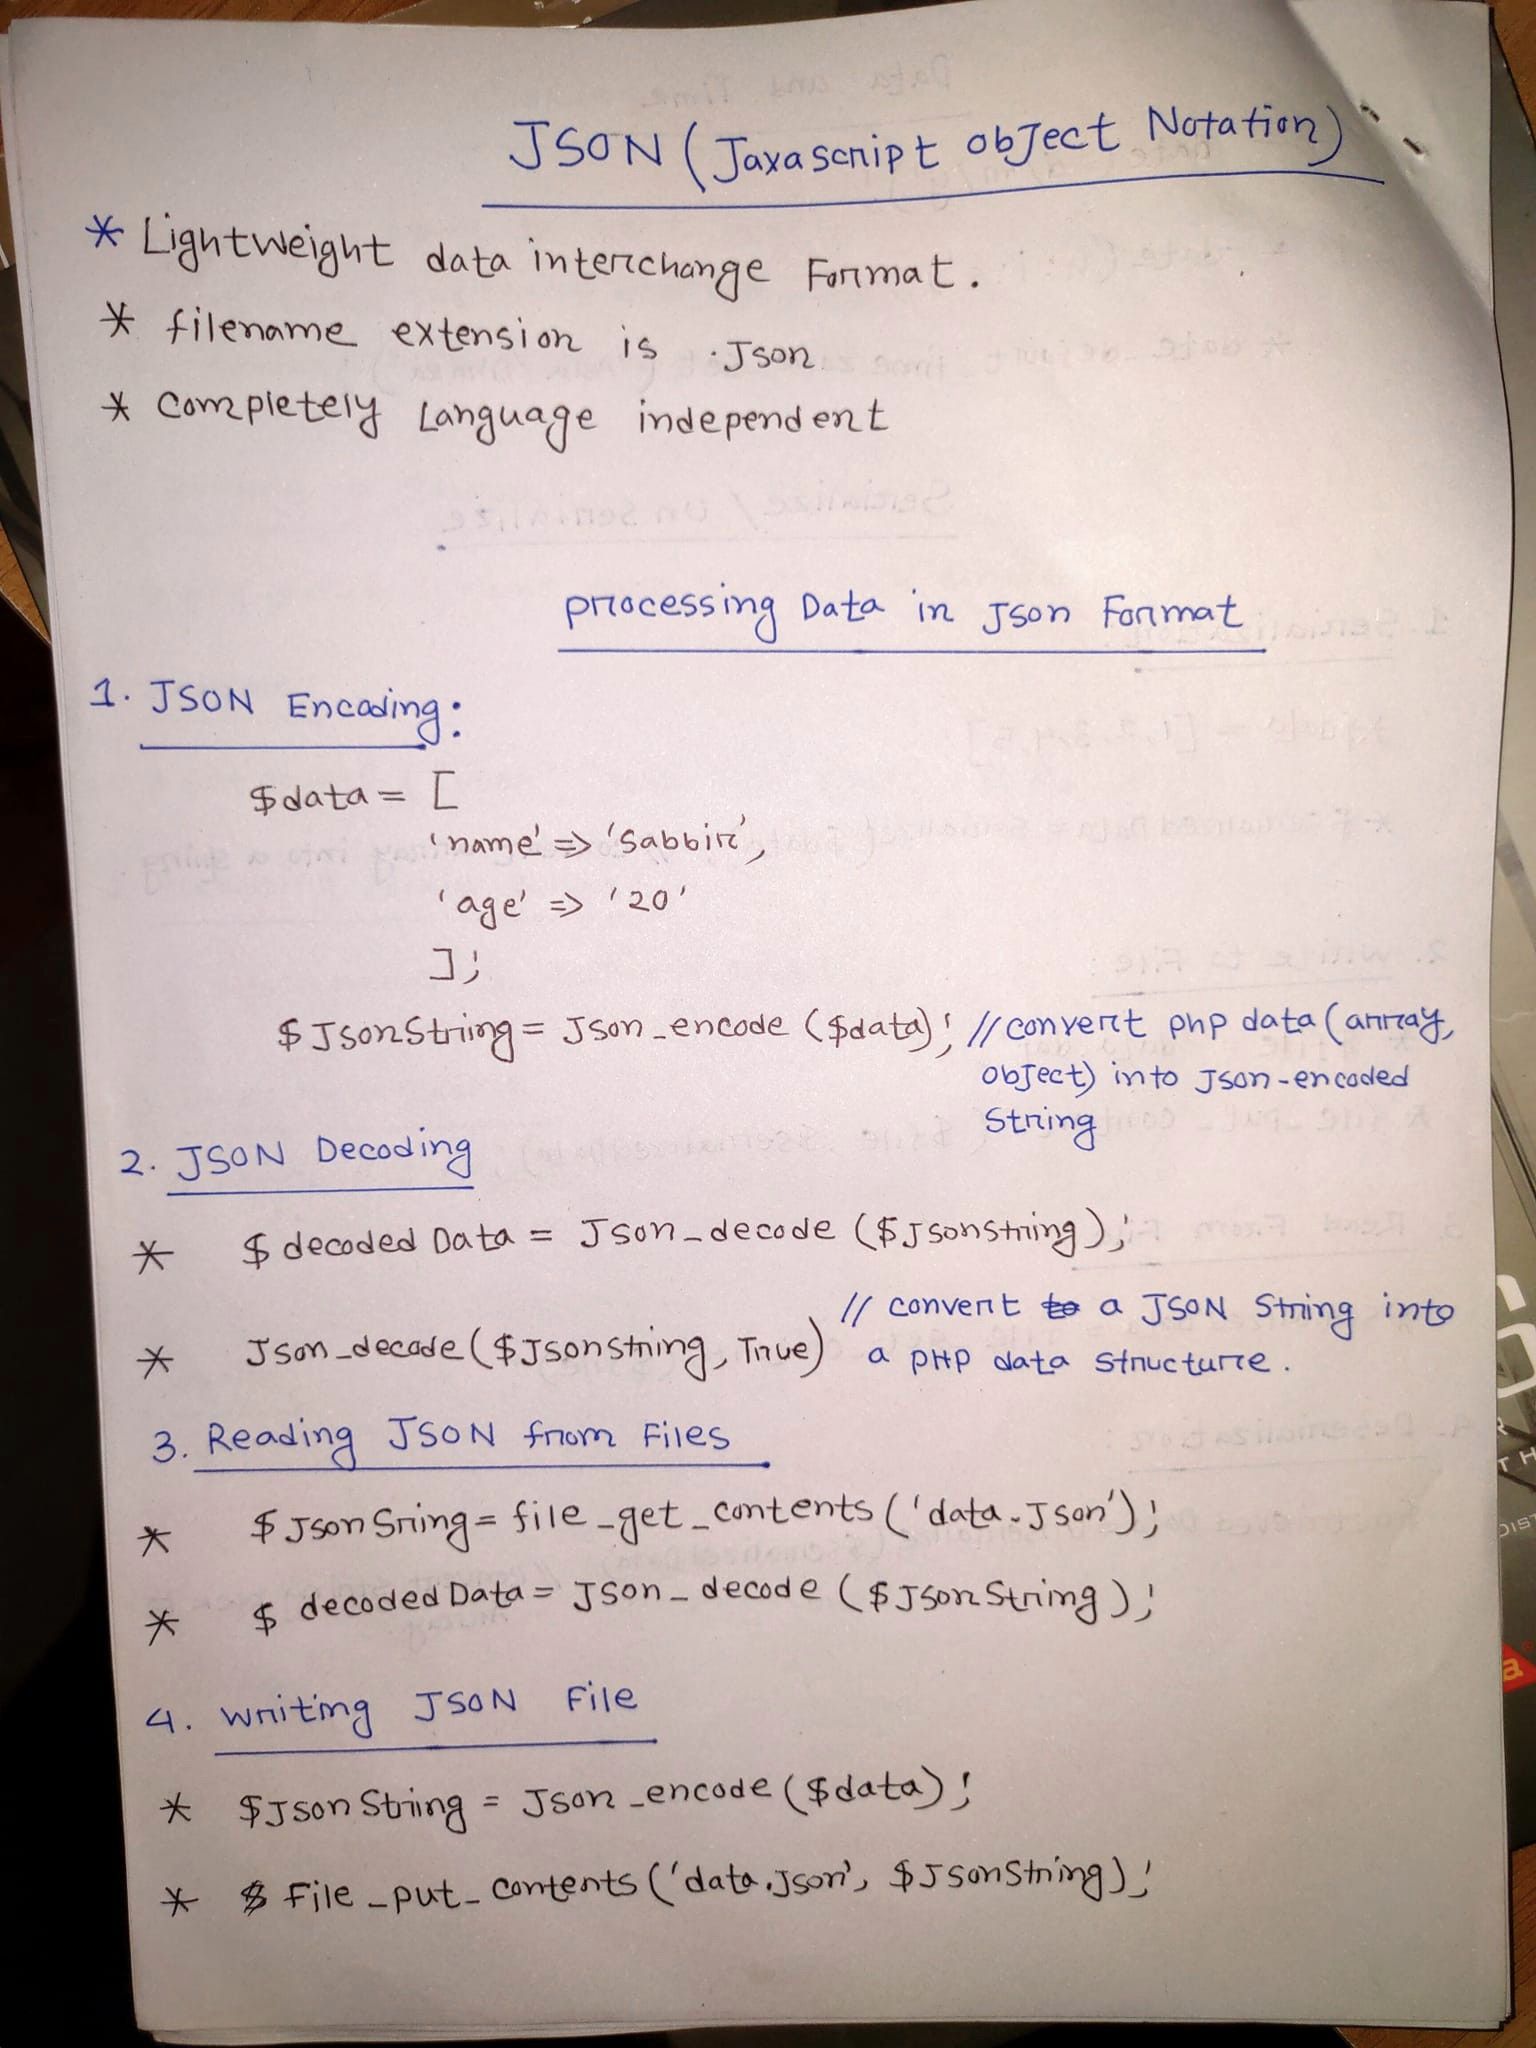 JSON (Jaxascript object Notation)
* Lightweight data interchange Format.
* filename extension is .Json
* Completely Language independent
processing Data in Json Format
1. JSON Encoding:
$data = [
'name' => 'Sabbir',
'age' => '20'
];
$JsonString = Json_encode ($data); // convert php data (array,
object) into Json-encoded
String
2. JSON Decoding
* $decoded Data = Json_decode ($Jsonstring);
// convert to a JSON String into
* Json_decode ($Jsonstring, True) a PHP data structure.
3. Reading JSON from Files
* $JsonSring = file_get_contents ('data.Json');
* $decodedData = Json_decode ($JsonString);
4. writing JSON File
* $JsonString = Json_encode ($data);
* $ File_put_contents ('data.json', $JsonString);